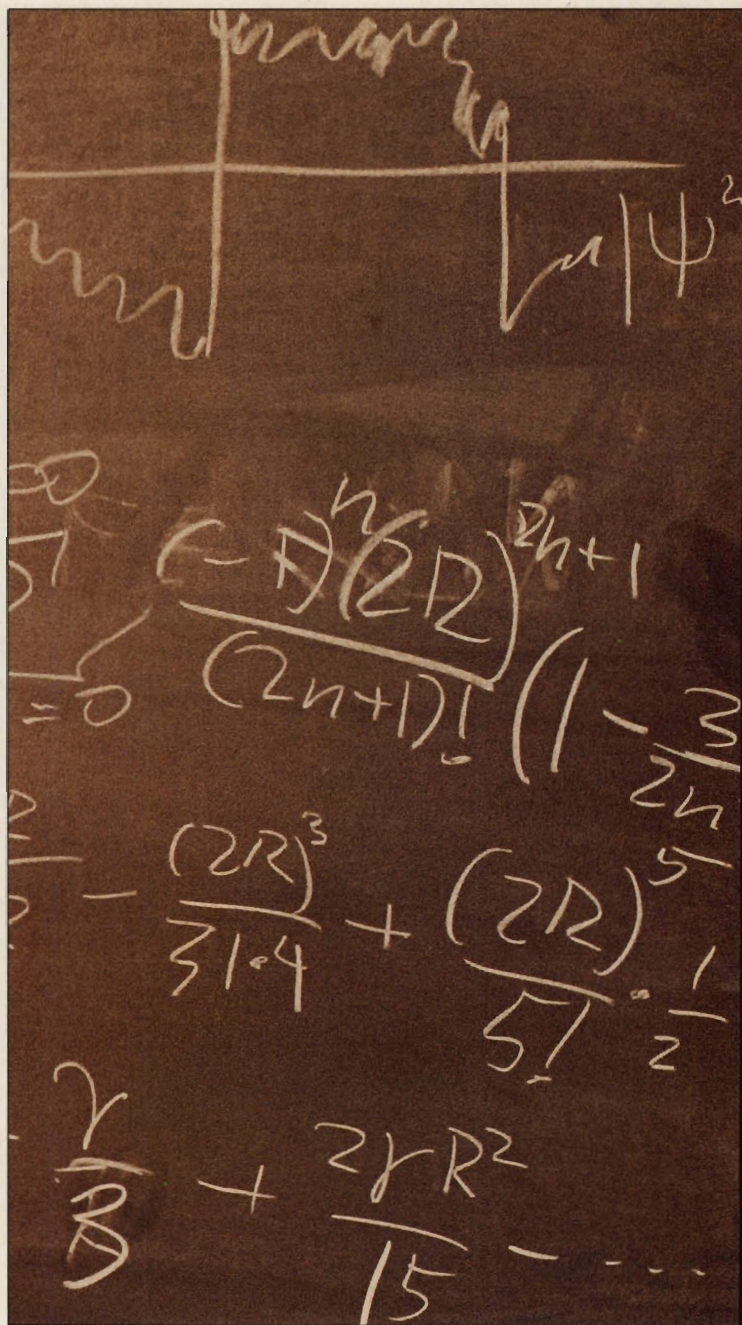 |Ψ²
∞
Σ
=0
(-1)ⁿ(2R)²ⁿ⁺¹
(2n+1)!
(1 - 3
2n
- (2R)³
3!·4
+ (2R)⁵
5!
· 1
2
γ
3
+ 2γR²
15
- ....